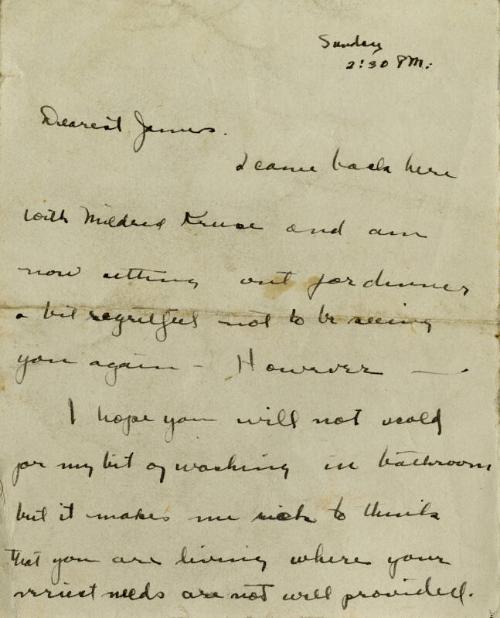 Sunday
2:30 PM.
Dearest James.
I came back here
with Mildred Kruse and am
now setting out for dinner
a bit regretful not to be seeing
you again - However —.
I hope you will not scold
for my bit of washing in bathroom
but it makes me sick to think
that you are living where your
veriest needs are not well provided.